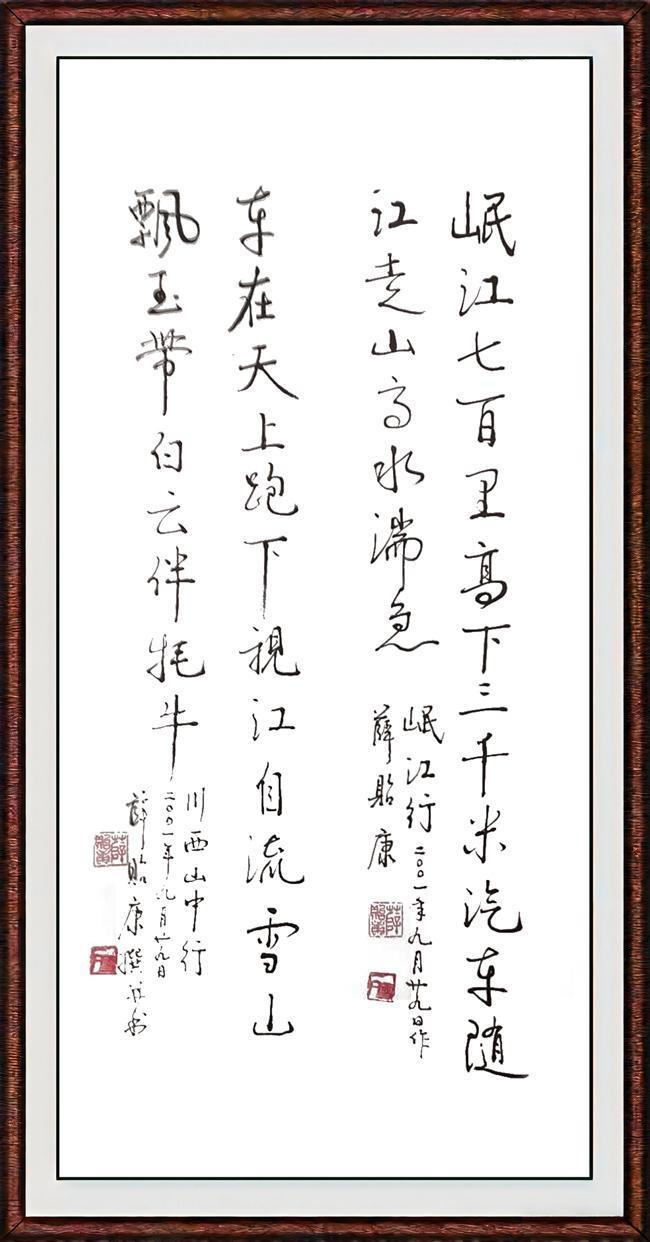 岷江七百里高下三千米汽车随
江走山高水湍急
岷江行 二〇〇一年九月廿九日作
薛贻康
车在天上跑下视江自流雪山
飘玉带白云伴牦牛
川西山中行
二〇〇一年九月廿九日
薛贻康撰并书